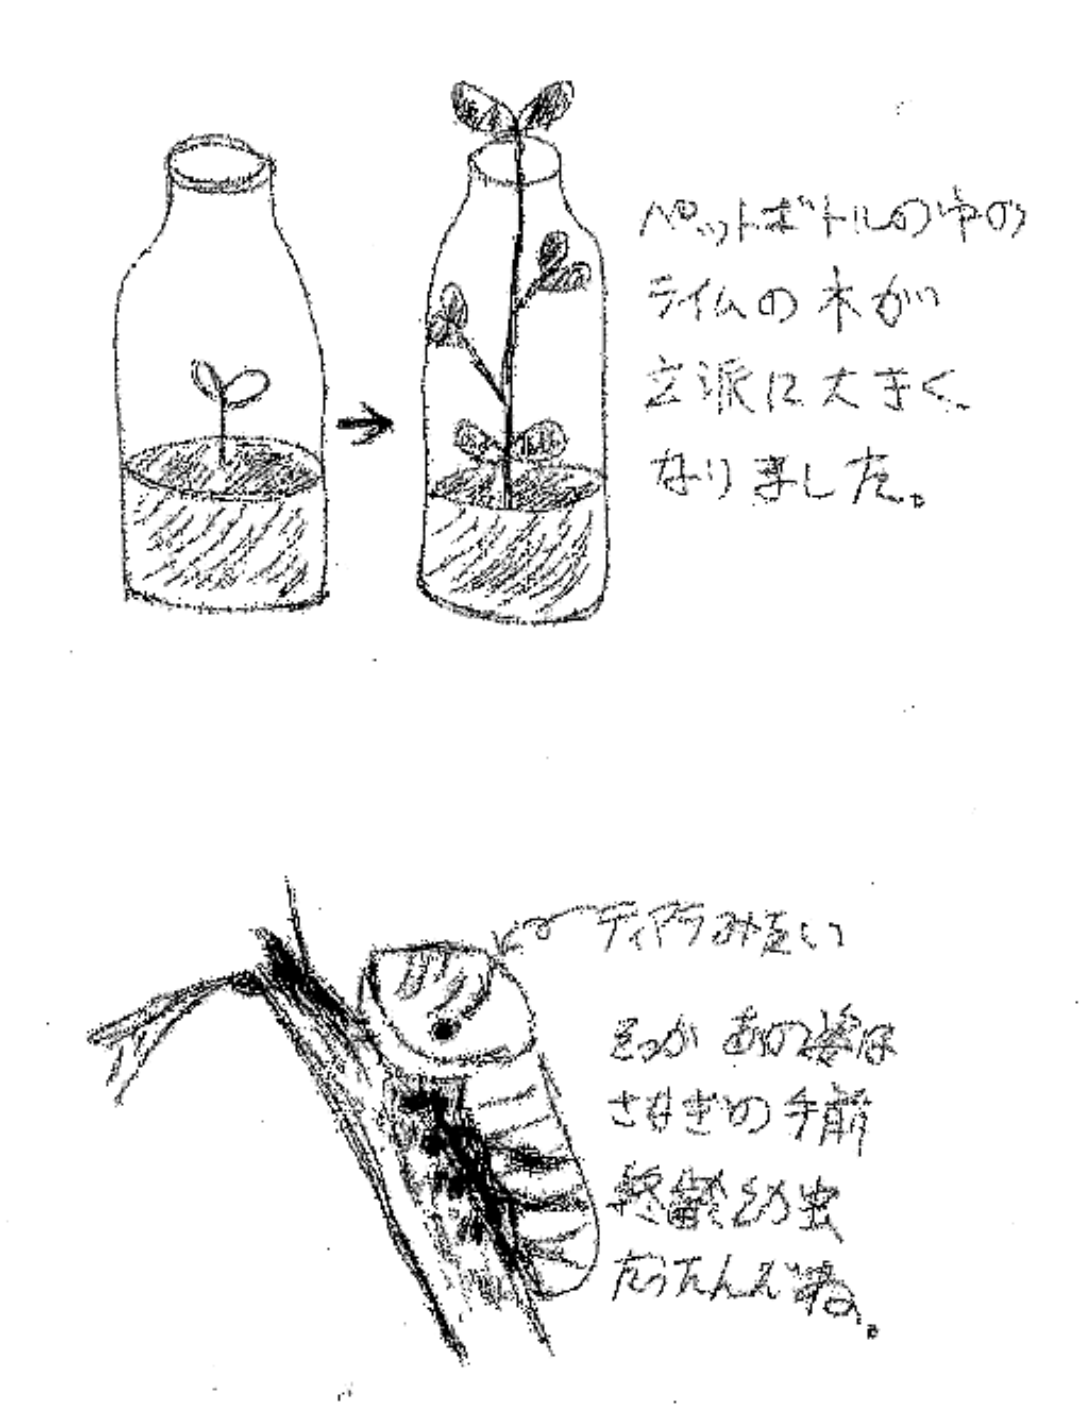 ペットボトルの中の
ライムの木が
立派に大きく
なりました。
ティアラみたい
そっか あの姿は
さなぎの手前
終齢幼虫
だったんだね。